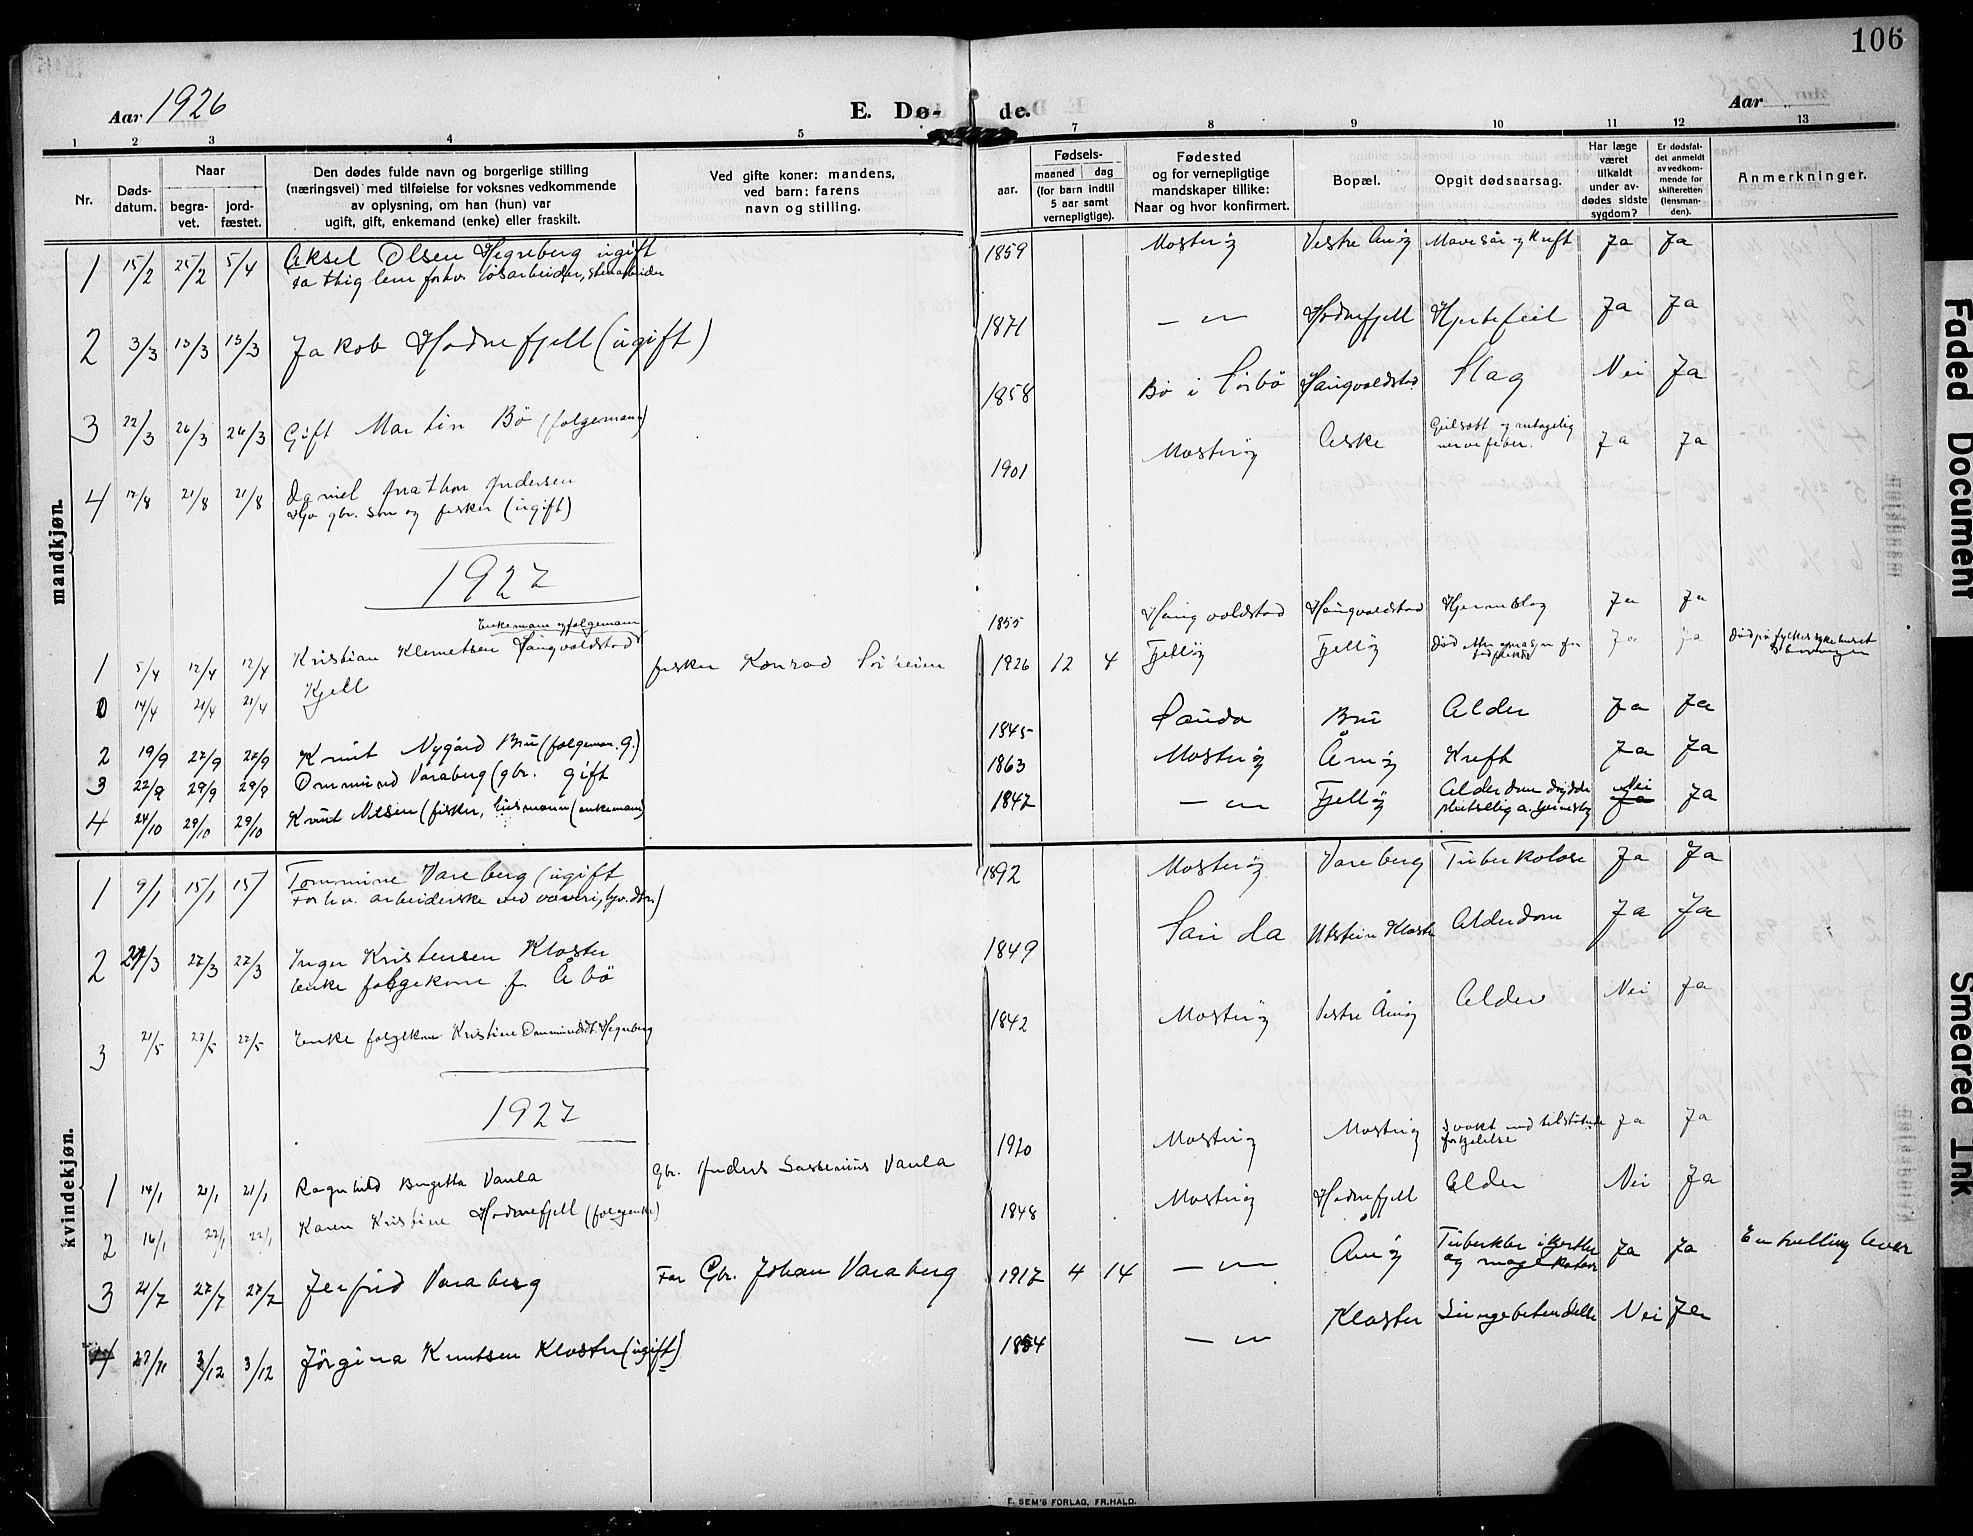 106
Aar 1926
E. Dø- de.
Aar
1 2 3 4 5 7 8 9 10 11 12 13
Nr.
Døds-
datum.
Naar
begra-
vet.
jord-
fæstet.
Den dødes fulde navn og borgerlige stilling
(næringsvei) med tilføielse for voksnes vedkommende
av oplysning, om han (hun) var
ugift, gift, enkemand (enke) eller fraskilt.
Ved gifte koner: mandens,
ved barn: farens
navn og stilling.
Fødsels-
aar.
maaned dag
(for barn indtil
5 aar samt
vernepligtige).
Fødested
og for vernepligtige
mandskaper tillike:
Naar og hvor konfirmert.
Bopæl.
Opgit dødsaarsag.
Har læge
været
tilkaldt
under av-
dødes sidste
sygdom?
Er dødsfal-
det anmeldt
av vedkom-
mende for
skifteretten
(lensman-
den).
Anmerkninger.
mandkjøn.
1 15/2 25/2 5/4 Aksel Olsen Hegreberg ugift 1859 Mosterøy Vestre Åmøy Mavesår og Kreft Ja Ja
fattig lem forhv. løsarbeider, stenarbeider
2 3/3 13/3 13/3 Jakob Hodnefjell (ugift) 1871 — " — Hodnefjell Hjertefeil Ja Ja
3 22/3 26/3 26/3 Gift Martin Bø (folgemann) 1858 Bø i Sørbø Haugvaldstad Slag Nei Ja
4 17/8 21/8 21/8 Daniel Jonathan Andersen 1901 Mosterøy Aske Gulsott og antagelig
nervefeber. Ja Ja
gbr. søn og fisker (ugift)
1927
Enkemann og folgemann
1 5/4 12/4 12/4 Kristian Klemetsen Haugvaldstad 1855 Haugvaldstad Haugvaldstad Hjerneslag Ja Ja
0 14/4 21/4 21/4 Kjell fisker Konrad Sørheim 1926 12 4 Fjelløy Fjelløy Ja Ja Død på fylkessykehuset
Stavanger
2 19/9 27/9 27/9 Knut Nygård Bru (folgeman. g.) 1845 Sauda Bru Alder Ja Ja
3 22/9 29/9 29/9 Ommund Varaberg (gbr. gift 1863 Mosterøy Åmøy Kreft Ja Ja
4 24/10 29/10 29/10 Knut Nilsen (fisker, husmann (enkemann) 1847 — " — Fjelløy Alderdom døydde
plutsellig a. hjerneslag Nei Ja Ja
kvindekjøn.
1 9/1 15/1 15/ Tommine Vareberg (ugift 1892 Mosterøy Vareberg Tuberkolose Ja Ja
Forhv. arbeiderske ved væveri, gbr. dtr.)
2 24/3 27/3 27/3 Inger Kristensen Kloster 1849 Sauda Utstein Kloster Alderdom Ja Ja
Enke folgekone f. Åbø
3 21/5 27/5 27/5 Enke folgekone Kristine Ommundsdt. Hegreberg 1842 Mosterøy Vestre Åmøy Alder Nei Ja
1927
1 14/1 21/1 21/1 Ragnhild Birgetta Vaula Gbr. Anders Vaula 1920 Mosterøy Mosterøy svakt med tilstøtende
forkjølelse Ja Ja
2 16/1 22/1 22/1 Karen Kristine Hodnefjell (folgeenke) 1848 Mosterøy Hodnefjell Alder Nei Ja
3 21/7 27/7 27/7 Jerfrid Varaberg Far Gbr. Johan Varaberg 1917 4 14 — " — Åmøy Tuberkler i kjertler
og magekatarr Ja Ja En tvilling lever
4 27/11 3/12 3/12 Jørgina Knutsen Kloster (ugift) 1854 — " — Kloster Lungebetendelse Nei Ja
E. SEM'S FORLAG, FR.HALD.
Faded Document
Smeared Ink